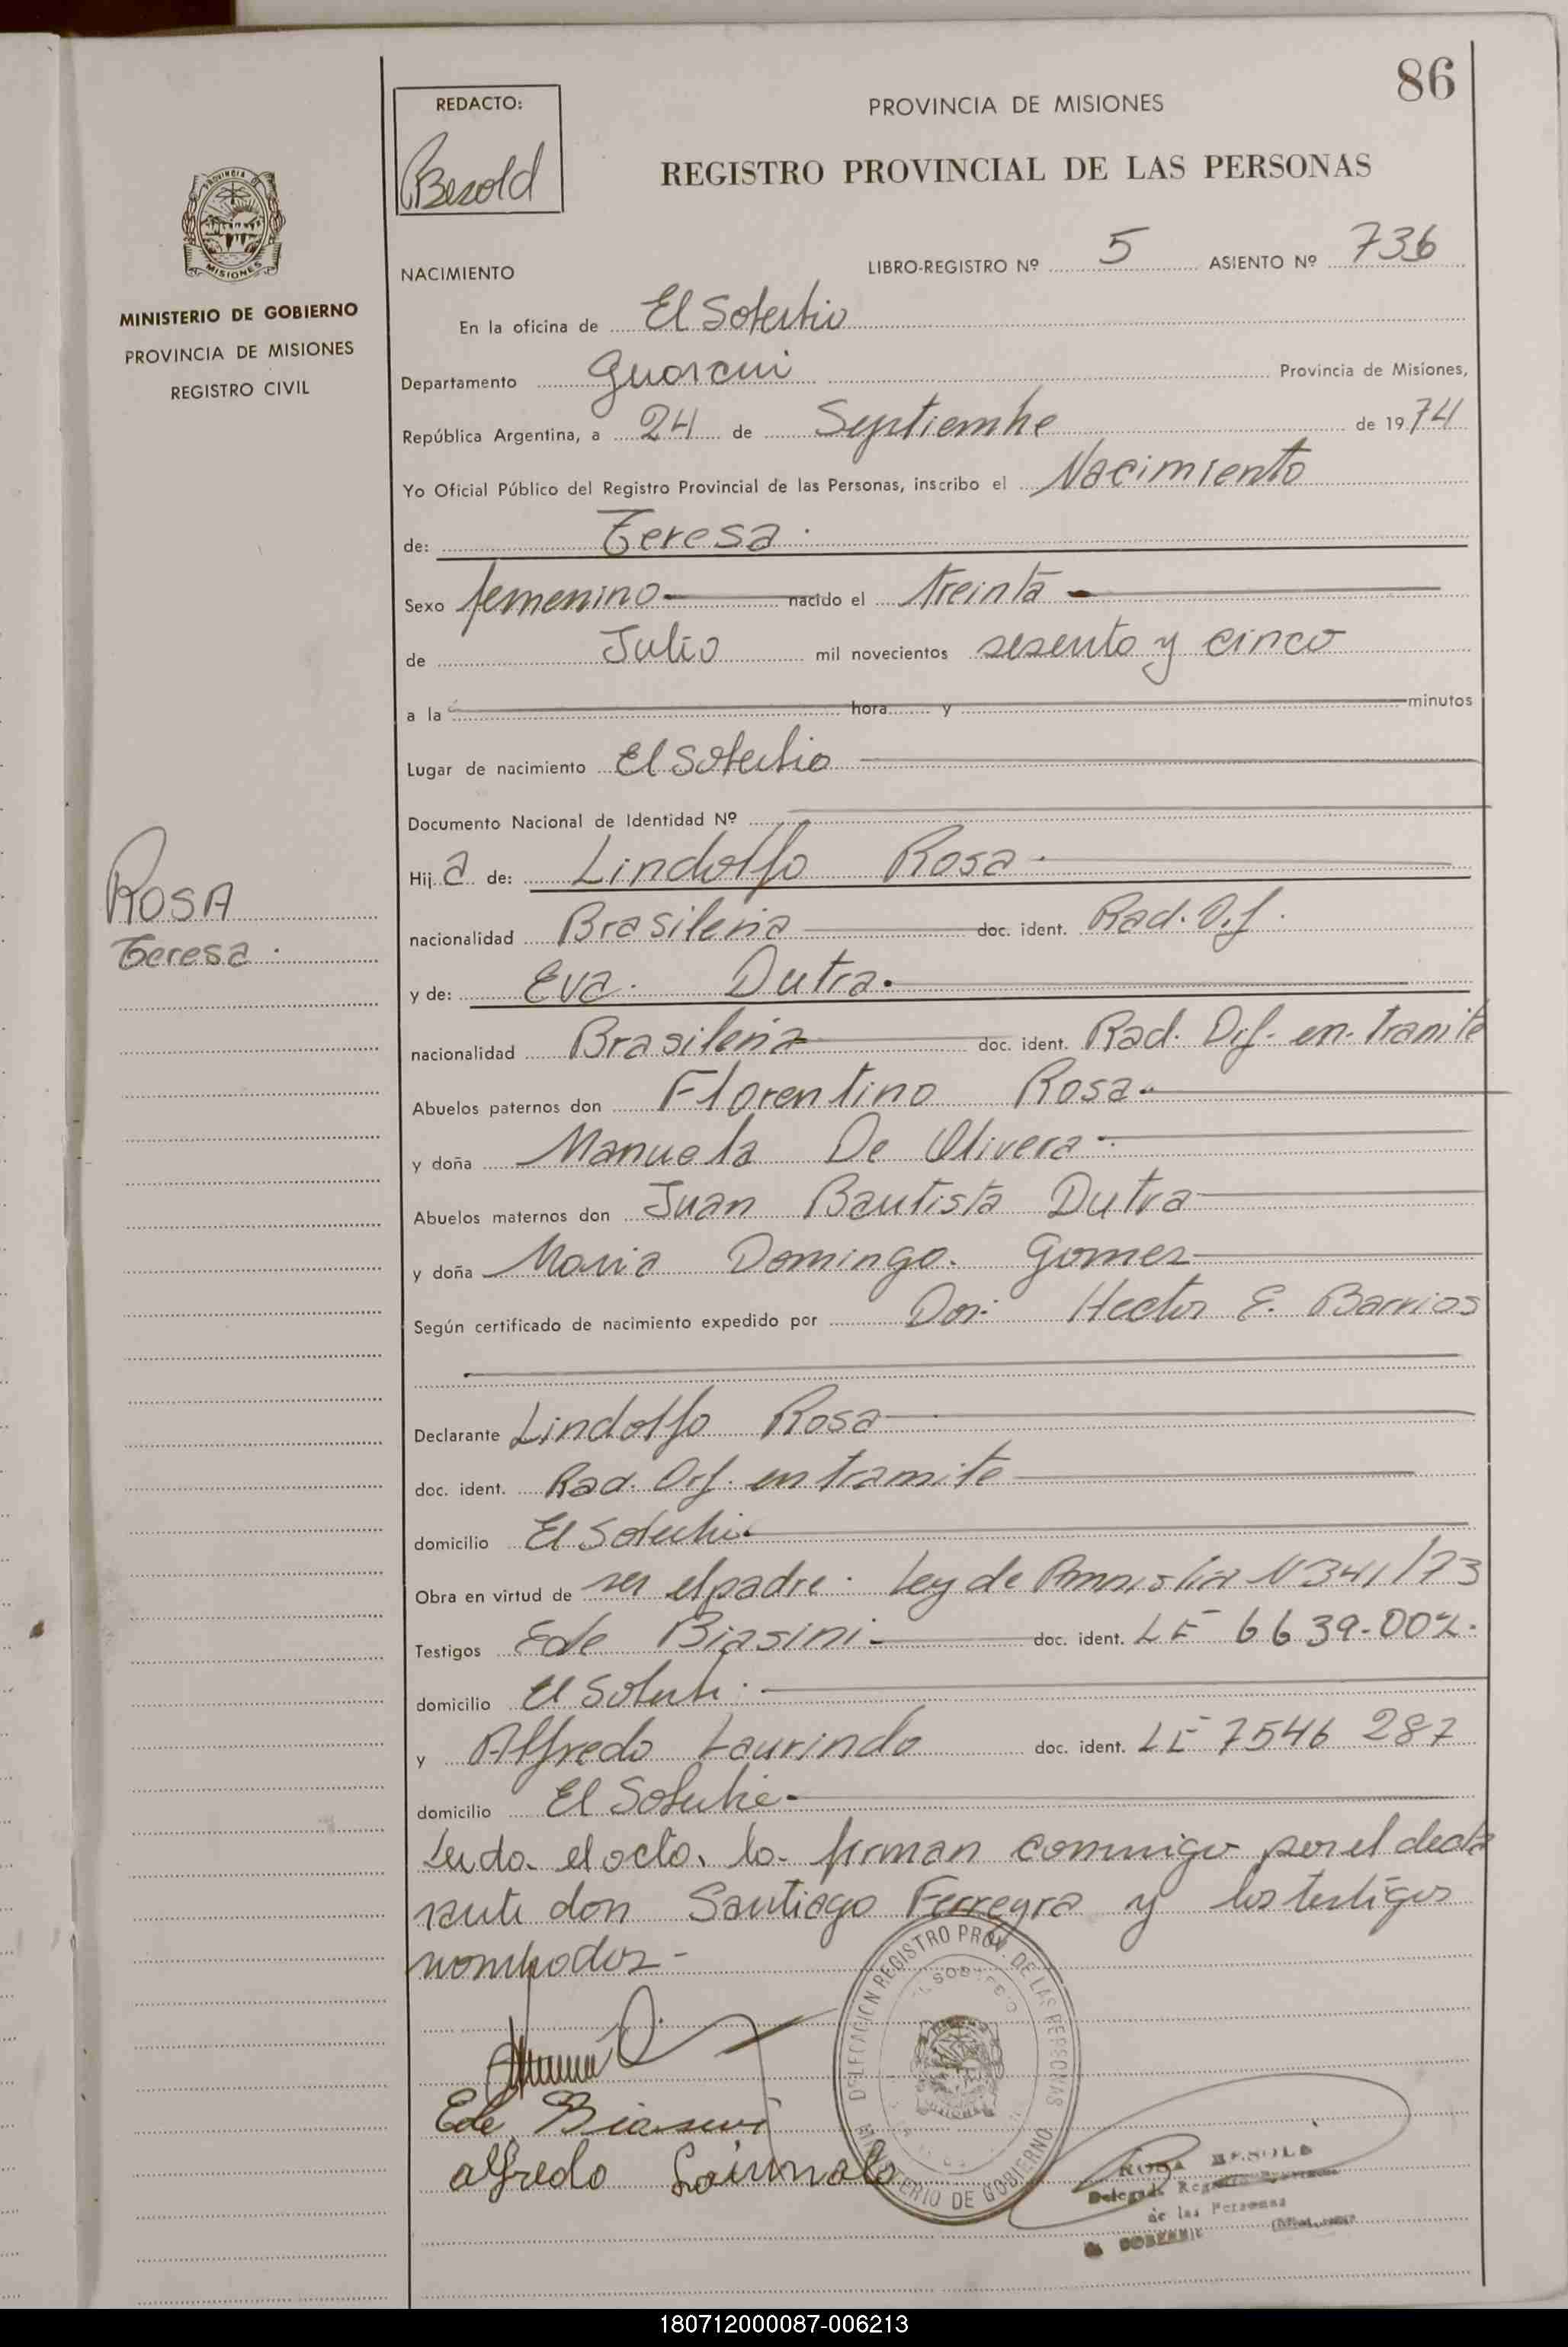 86
REDACTO:
Besold
PROVINCIA DE MISIONES
REGISTRO PROVINCIAL DE LAS PERSONAS
PROVINCIA DE
MISIONES
MINISTERIO DE GOBIERNO
PROVINCIA DE MISIONES
REGISTRO CIVIL
NACIMIENTO
LIBRO-REGISTRO Nº 5 ASIENTO Nº 736
En la oficina de El Soberbio
Departamento Guarani Provincia de Misiones,
República Argentina, a 24 de Septiembre de 1974
Yo Oficial Público del Registro Provincial de las Personas, inscribo el Nacimiento
de: Teresa.
Sexo femenino nacido el treinta
de Julio mil novecientos sesenta y cinco
a la hora y minutos
Lugar de nacimiento El Soberbio
Documento Nacional de Identidad Nº
Hija de: Lindolfo Rosa
nacionalidad Brasileña doc. ident. Rad. Dif.
y de: Eva Dutra.
nacionalidad Brasileña doc. ident. Rad. Dif. en tramite
Abuelos paternos don Florentino Rosa
y doña Manuela De Olivera
Abuelos maternos don Juan Bautista Dutra
y doña Maria Dominga Gomez
Según certificado de nacimiento expedido por Don: Hector E. Barrios
Declarante Lindolfo Rosa
doc. ident. Rad. Dif. en tramite
domicilio El Soberbio
Obra en virtud de ser el padre. Ley de Amnistia N 341/73
Testigos Ede Biasini doc. ident. LE 6639-002.
domicilio El Soberbio
y Alfredo Laurindo doc. ident. LE 7546 287
domicilio El Soberbio
Leida el acta, la firman conmigo por el decla
rante don Santiago Ferreyra y los testigos
nombrados -
ROSA
Teresa.
Ede Biasini
alfredo
DELEGACION REGISTRO PROV. DE LAS PERSONAS
MINISTERIO DE GOBIERNO
ROSA BESOLD
Delegada Registro
de las Personas
180712000087-006213